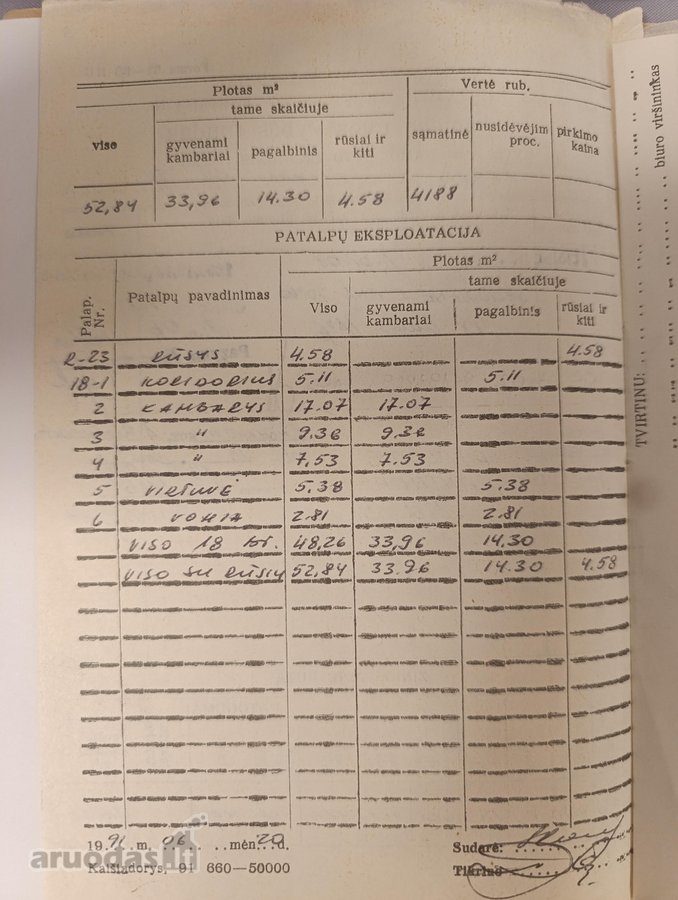 Plotas m²
Vertė rub.
tame skaičiuje
viso
gyvenami kambariai
pagalbinis
rūsiai ir kiti
sąmatinė
nusidėvėjim proc.
pirkimo kaina
52,84 33,96 14.30 4.58 4188
PATALPŲ EKSPLOATACIJA
Palap. Nr.
Patalpų pavadinimas
Plotas m²
tame skaičiuje
Viso
gyvenami kambariai
pagalbinis
rūsiai ir kiti
R-23 RŪSYS 4.58 4.58
18-1 KORIDORIUS 5.11 5.11
2 KAMBARYS 17.07 17.07
3 " 9.36 9.36
4 " 7.53 7.53
5 VIRTUVĖ 5.38 5.38
6 VONIA 2.81 2.81
VISO 18 bt. 48,26 33,96 14.30
VISO SU RŪSIU 52,84 33.96 14.30 4.58
1991 m. 06 mėn. 20 d.
Kaišiadorys, 91 660—50000
Sudarė:
Tikrino
TVIRTINU:
biuro viršininkas
aruodas.lt